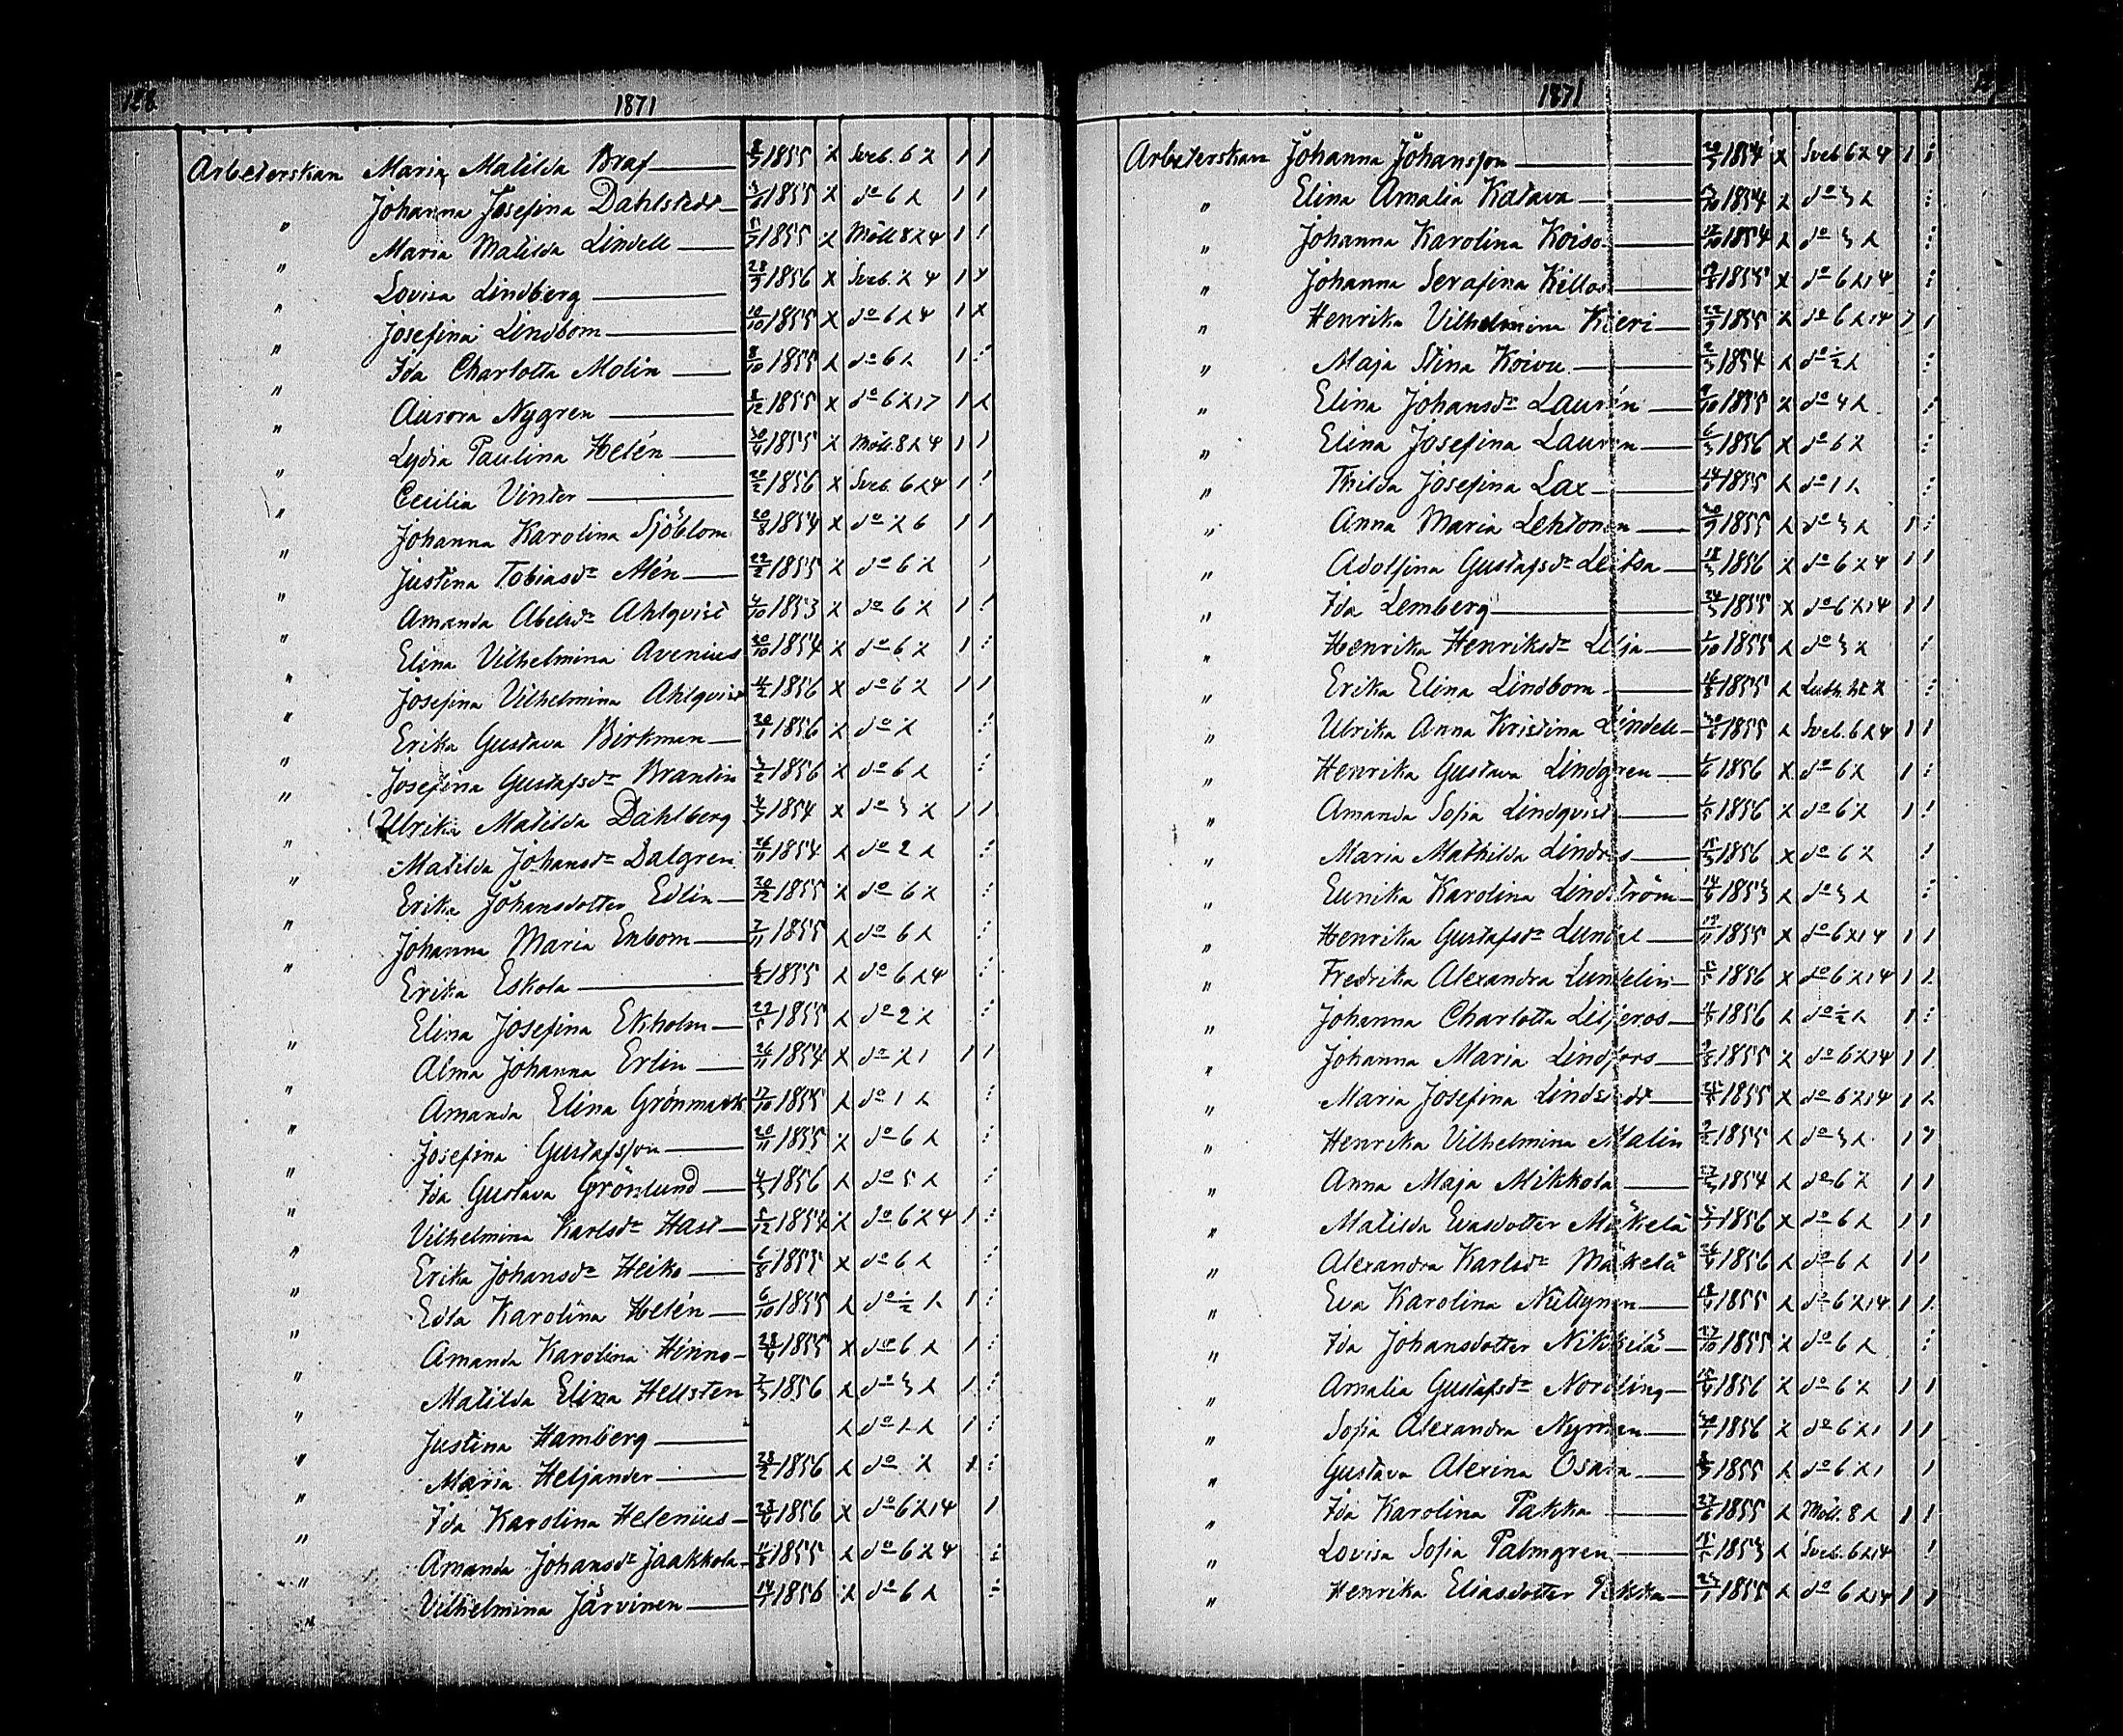 128.
1871
Arbeterskan Maria Matilda Braf 1855 x Sveb. 6 x 1 1
Johanna Josefina Dahlstedt 1855 x do 6 x 1 1
" Maria Matilda Lindell 1855 x Möll 8 x 4 1 1
" Lovisa Lindberg 28/9 1856 x Sveb. x 4 1 x
" Josefina Lindbom 10/10 1855 x do 6 x 4 1 x
" Ida Charlotta Molin 8/10 1855 x do 6 x 1
" Aurora Nygren 8/12 1855 x do 6 x 1 x
" Lydia Paulina Helén 1855 x Möll. 8 x 4 1 1
" Cecilia Vinter 20/2 1856 x Sveb. 6 x 4 1 1
" Johanna Karolina Sjöblom 20/8 1854 x do x 6 1 1
" Justina Tobiasdr Alén 22/2 1855 x do 6 x 1
" Amanda Abelsdr Ahlqvist 4/10 1853 x do 6 x 1 1
" Elina Vilhelmina Avenius 20/10 1854 x do 6 x 1
" Josefina Vilhelmina Ahlqvist 4/2 1856 x do 6 x 1 1
" Erika Gustava Birkman 20/1 1856 x do x
" Josefina Gustafsdr Brantin 3/2 1856 x do 6 x
" Ulrika Matilda Dahlberg 1854 x do 3 x 1 1
" Matilda Johansdr Dalgren 26/11 1854 x do 2 x
" Erika Johansdotter Edlin 20/12 1855 x do 6 x
" Johanna Maria Enbom 7/11 1855 x do 6 x
" Erika Eskola 6/2 1855 x do 6 x 4
Elina Josefina Ekholm 22/5 1855 x do 2 x
" Alma Johanna Erlin 26/11 1854 x do x 1 1 1
" Amanda Elina Grönmark 17/10 1855 x do 1 x
" Josefina Gustafsson 20/11 1855 x do 6 x
" Ida Gustava Grönlund 4/3 1856 x do 5 x
" Vilhelmina Karlsdr Hast 5/12 1854 x do 6 x 4 1
" Erika Johansdr Heiko 6/8 1855 x do 6 x
" Edla Karolina Helén 6/10 1855 x do ½ x 1
" Amanda Karolina Hinno 1855 x do 6 x 1
" Matilda Elina Hellsten 7/3 1856 x do 3 x 1
" Justina Hamberg x do 1 x 1
" Maria Heljander 28/2 1856 x do x x
" Ida Karolina Helenius 1856 x do 6 x 14 1
" Amanda Johansdr Jaakkola 11/8 1855 x do 6 x 4
" Vilhelmina Järvinen 14/1 1856 x do 6 x
1871
Arbeterskan Johanna Johansson 1854 x Sveb 6 x 4 1
" Elina Amalia Katava 1854 x do 3 x
" Johanna Karolina Koiso 1854 x do 3 x
" Johanna Serafina Killos 1855 x do 6 x 14
" Henrika Vilhelmina Kieri 1855 x do 6 x 14 1
" Maja Stina Koivu 1854 x do ½ x
" Elina Johansdr Laurén 1855 x do 4 x
" Elina Josefina Laurén 6/3 1856 x do 6 x
" Thilda Josefina Lax 1855 x do 1 x
" Anna Maria Lehtonen 1855 x do 3 x 1
" Adolfina Gustafsdr Leitsa 18/3 1856 x do 6 x 4 1 1
" Ida Lemberg 1855 x do 6 x 14 1 1
" Henrika Henriksdr Lilja 1/10 1855 x do 3 x
" Erika Elina Lindbom 1855 x Luth. x
" Ulrika Anna Kristina Lindell 1855 x Sveb. 6 x 4 1 1
" Henrika Gustava Lindgren 1856 x do 6 x 1
" Amanda Sofia Lindqvist 1856 x do 6 x 1 1
" Maria Mathilda Lindros 1856 x do 6 x
" Eunika Karolina Lindström 1853 x do 3 x
" Henrika Gustafsdr Lundal 1855 x do 6 x 14 1 1
" Fredrika Alexandra Lundelin 1856 x do 6 x 14 1 1
" Johanna Charlotta Liljeros 1856 x do ½ x 1
" Johanna Maria Lindfors 1855 x do 6 x 14 1 1
" Maria Josefina Lindstedt 1855 x do 6 x 14 1 x
" Henrika Vilhelmina Malin 1855 x do 3 x 1
" Anna Maja Mikkola 1854 x do 6 x 1 1
" Matilda Evasdotter Mäkelä 1856 x do 6 x 1 1
" Alexandra Karlsdr Mäkelä 1856 x do 6 x 1 1
" Eva Karolina Nittynen 1855 x do 6 x 14 1 1
" Ida Johansdotter Nikkilä 27/10 1855 x do 6 x
" Amalia Gustafsdr Nordling 1856 x do 6 x 1 1
" Sofia Alexandra Nyman 1856 x do 6 x 1 1 1
" Gustava Alexina Osara 1855 x do 6 x 1 1
" Ida Karolina Pakka 1855 x Möll. 8 x 1 1
" Lovisa Sofia Palmgren 1853 x Sveb. 6 x 14 1
" Henrika Eliasdotter Pekka 1855 x do 6 x 14 1 1